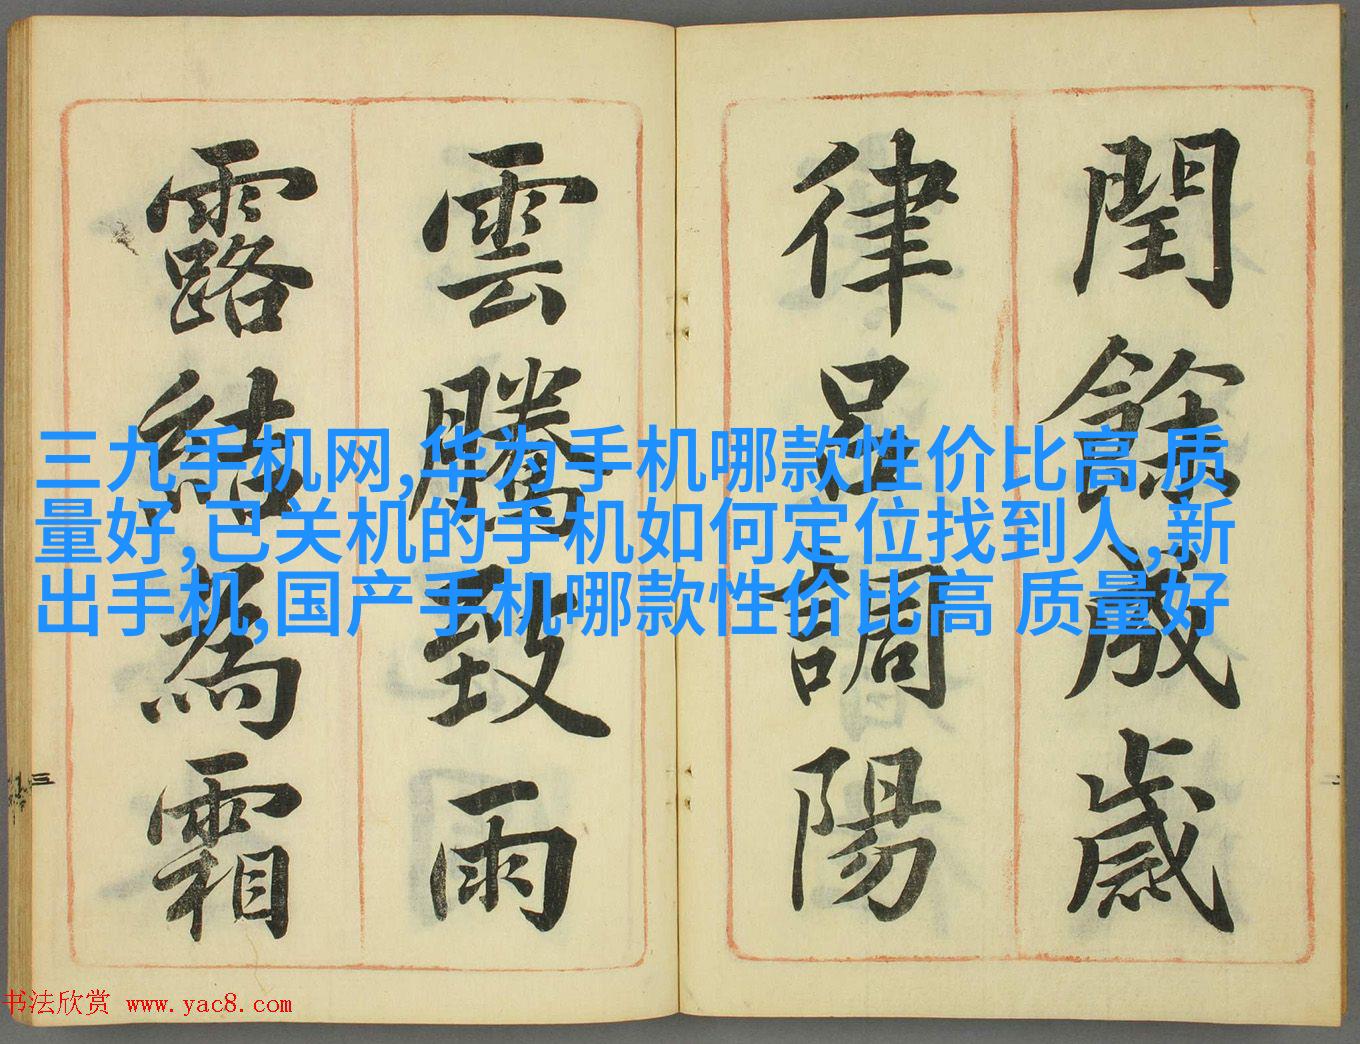 閏餘成歲
律呂調陽
雲騰致雨
露結為霜
三九手机网,华为手机哪款性价比高 质
量好,已关机的手机如何定位找到人,新
出手机,国产手机哪款性价比高 质量好
三
二
书法欣赏 www.yac8.com